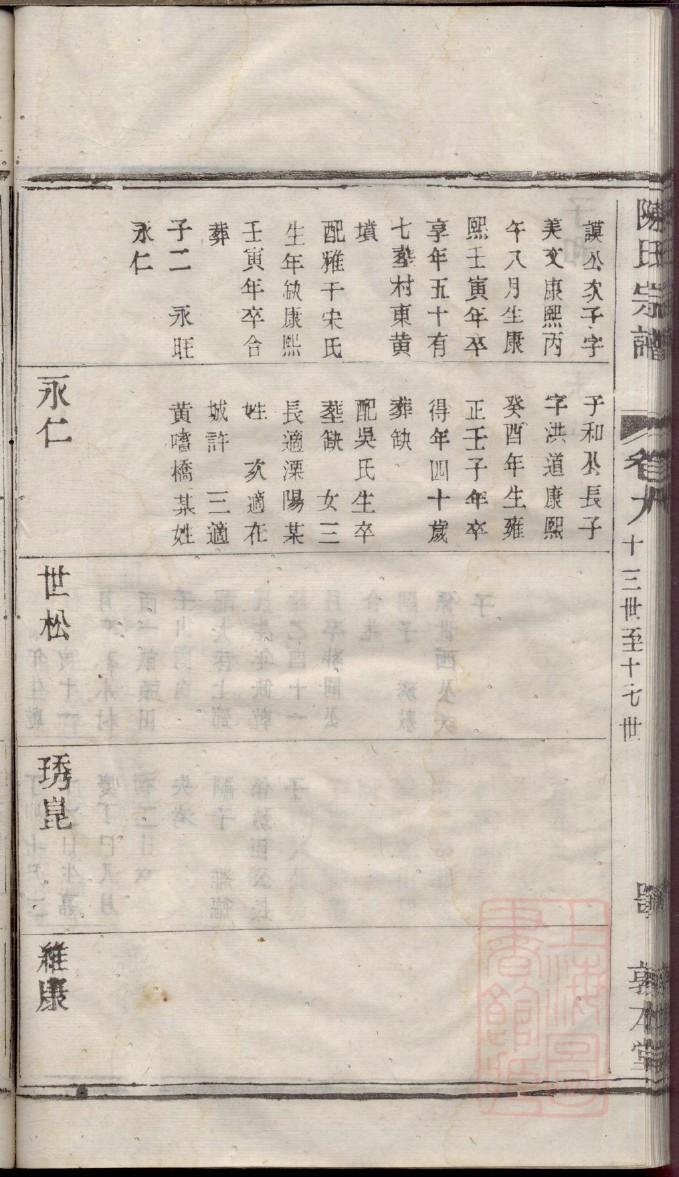 陳氏宗譜
卷九
十三世至十七世
敦本堂
謨公次子字
美文康熙丙
午八月生康
熙壬寅年卒
享年五十有
七葬村東黄
墳
配雅干宋氏
生年缺康熙
壬寅年卒合
葬
子二 永旺
永仁
于和公長子
字洪道康熙
癸酉年生雍
正壬子年卒
得年四十歲
葬缺
配吳氏生卒
塟缺 女三
長適溧陽某
姓 次適在
城許 三適
黄嘻橋某姓
永仁
世松
琇崑
維康
上海圖
書館藏